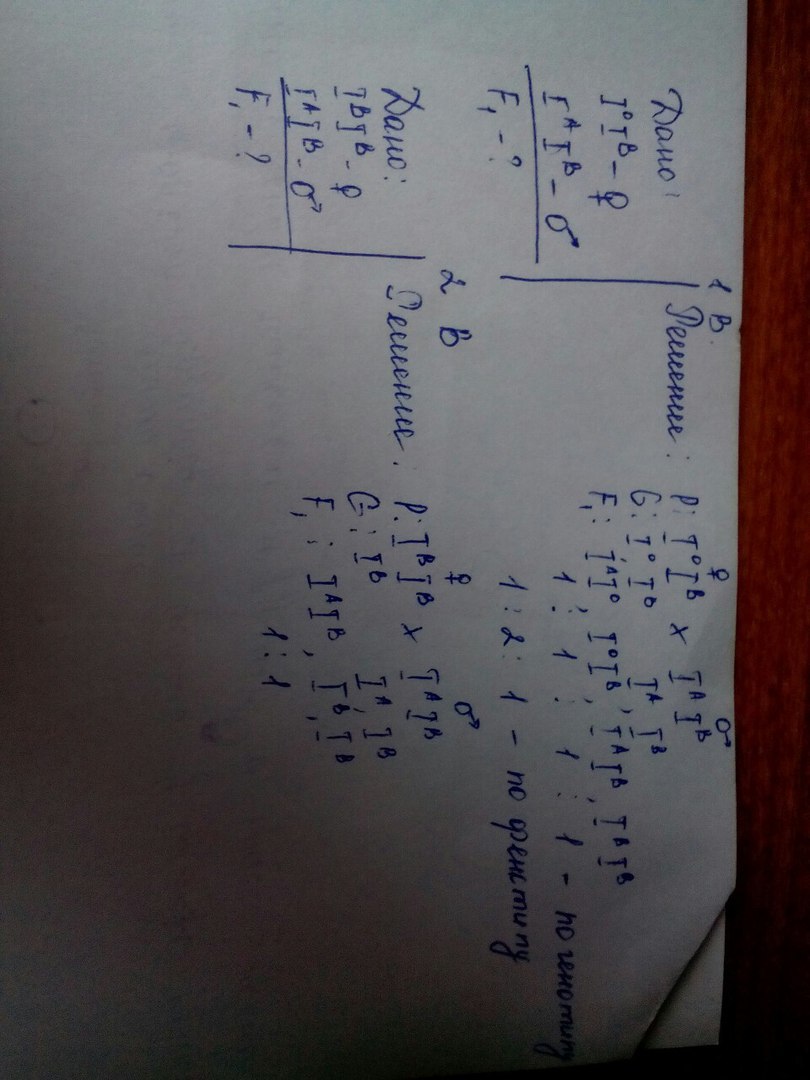 1 В.
Дано:
I⁰Iᴮ - ♀
IᴬIᴮ - ♂
F₁ - ?
Решение:
♀ ♂
P: I⁰Iᴮ x IᴬIᴮ
G: I⁰ Iᴮ Iᴬ, Iᴮ
F₁: IᴬI⁰, I⁰Iᴮ, IᴬIᴮ, IᴮIᴮ
1 : 1 : 1 : 1 - по генотипу
1 : 2 : 1 - по фенотипу
2 В
Дано:
IᴮIᴮ - ♀
IᴬIᴮ - ♂
F₁ - ?
Решение:
♀ ♂
P: IᴮIᴮ x IᴬIᴮ
G: Iᴮ Iᴬ, Iᴮ
F₁: IᴬIᴮ, IᴮIᴮ
1 : 1